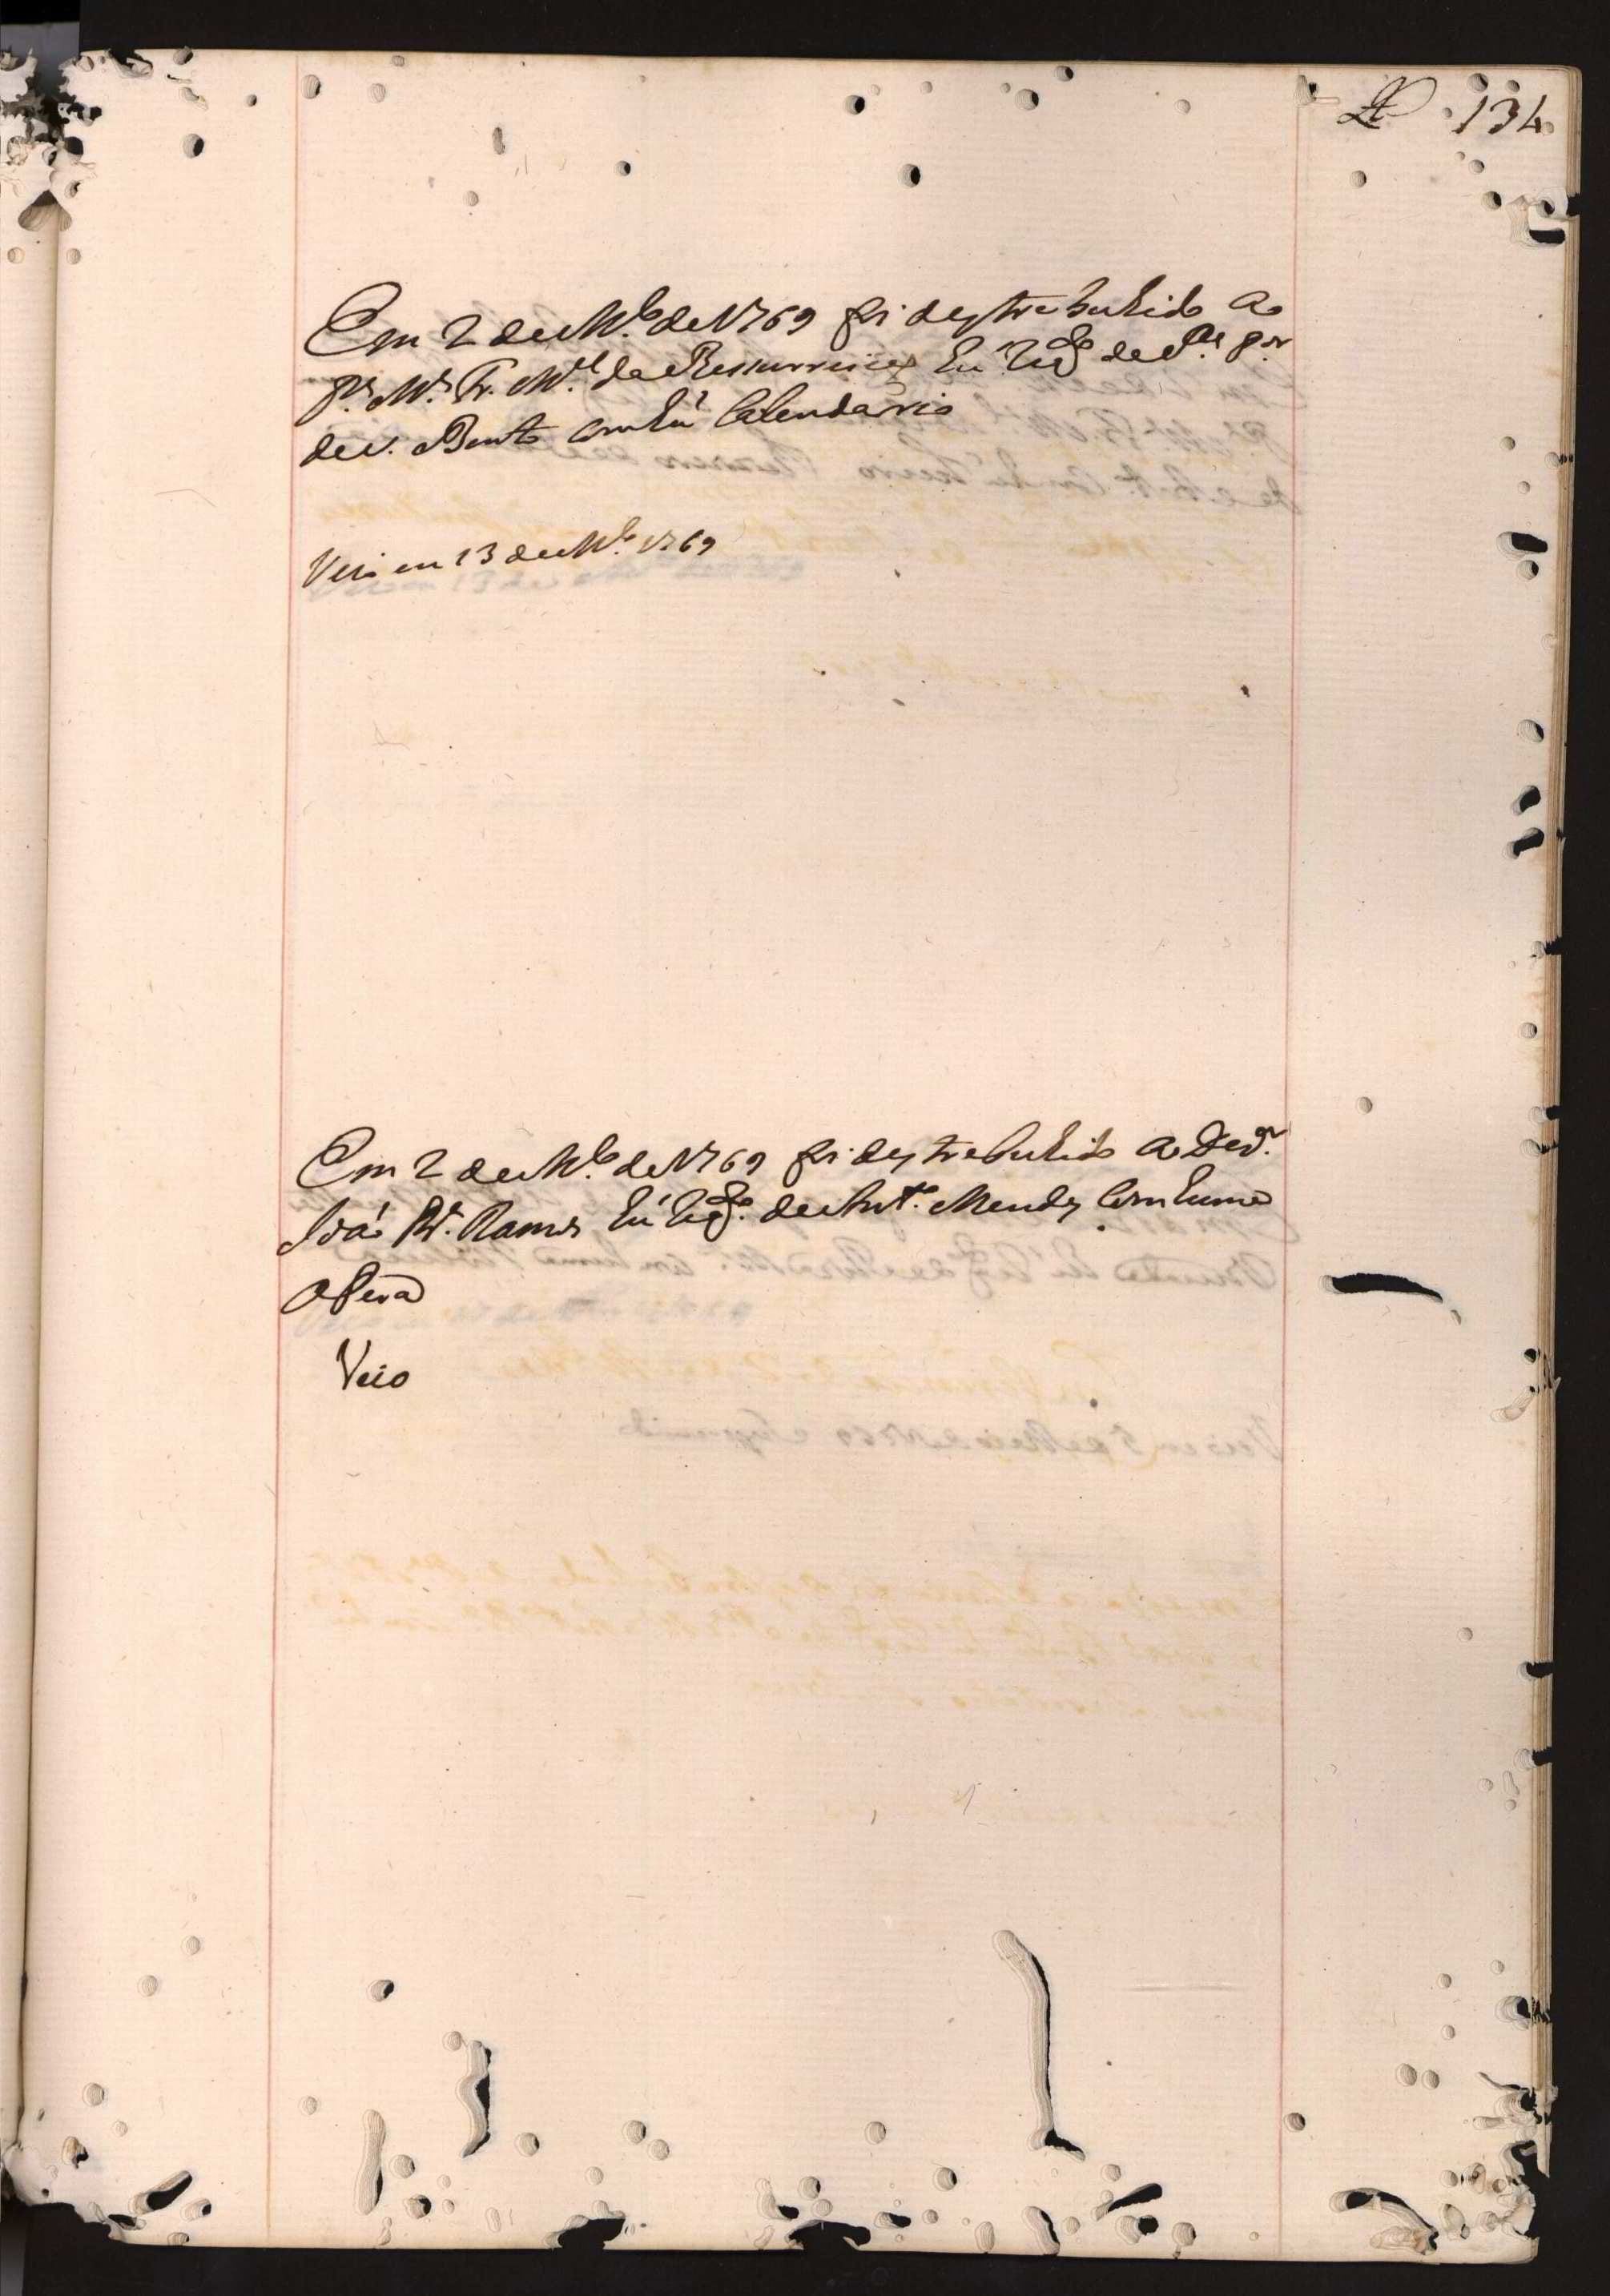 134
Em 2 de Abr.º de 1769 foi destrebuhido ao
P.e M.e Fr. M.el da Ressurreição hú req.to
de S. Bento com hú Calendario
Veio em 13 de Abr.º 1769
Em 2 de Abr.º de 1769 foi destrebuhido ao Dez.or
João Per.a Ramos hú req.to de Ant.º Mendes com huma
Opera
Veio